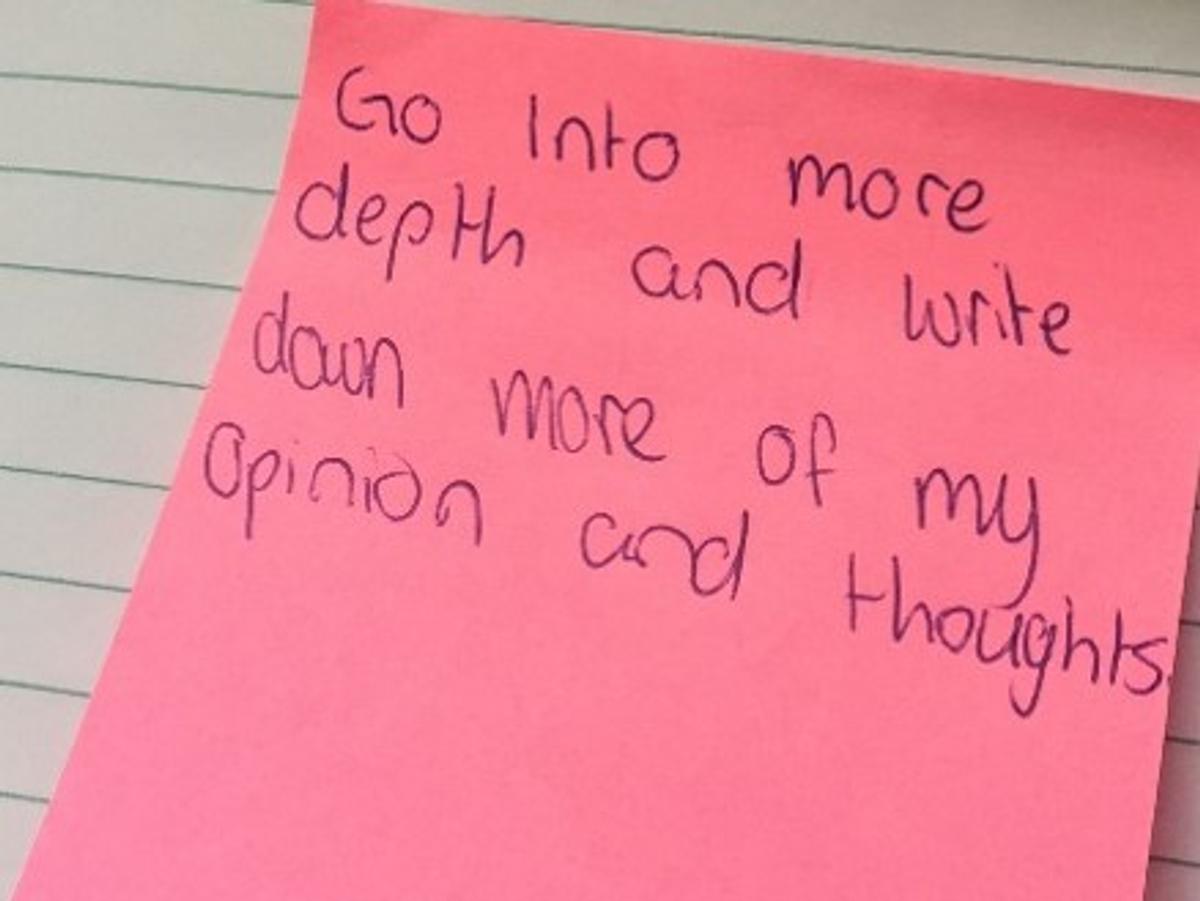 Go Into more
depth and write
down more of my
Opinion and thoughts.